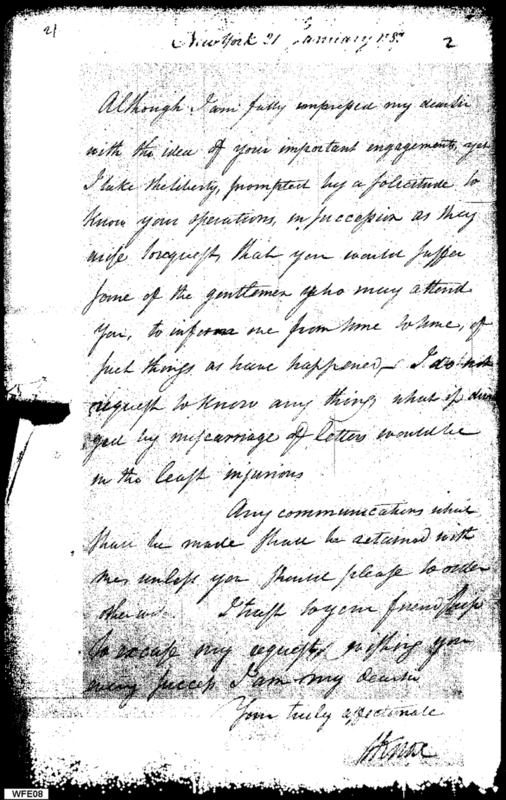 21
New York 21 January 1787
2
Although I am fully impressed my dear sir
with the idea of your important engagements, yet
I take the liberty, prompted by a solicitude to
know your operations, in succession as they
arise to request, that you would suffer
some of the gentlemen who may attend
you, to inform me from time to time, of
such things as have happened — I do not
request to know any thing what if divul
ged by miscarriage of letters would be
in the least injurious
Any communications which
shall be made shall be retained with
me unless you should please to order
otherwise I trust to your friendship
to excuse my request, wishing you
every success I am my dear sir
Your truly affectionate
HKnox
WFE08